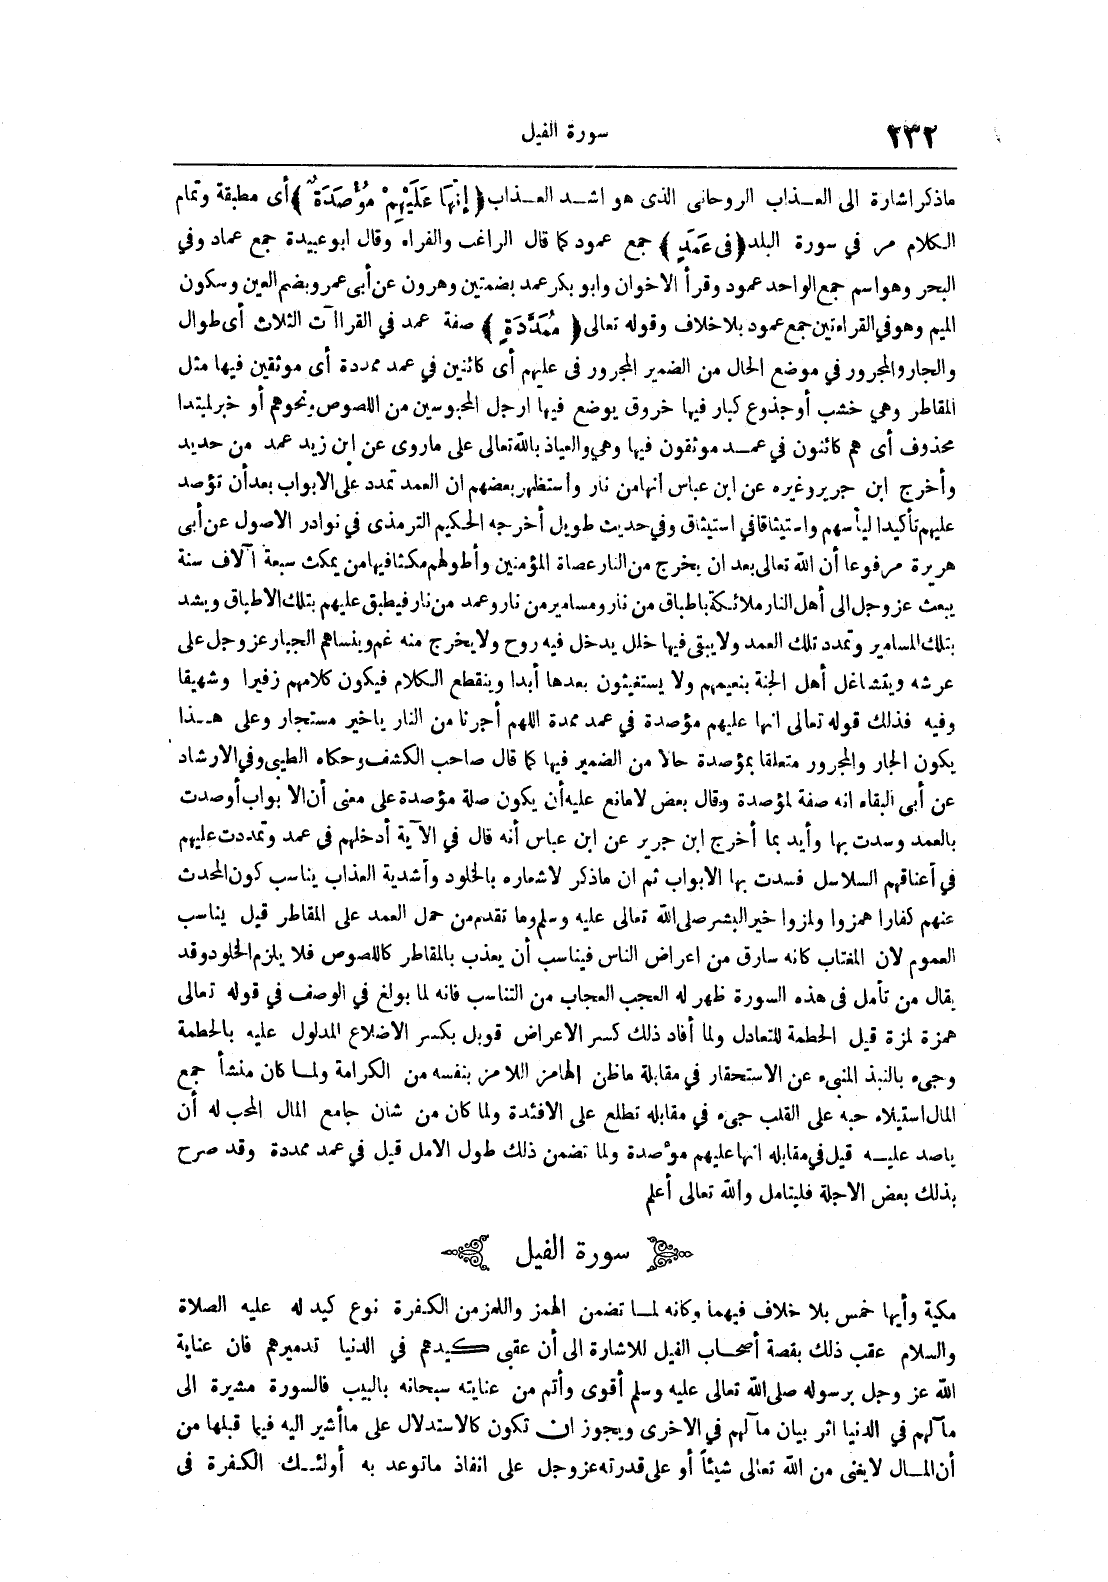 ٢٣٢
سورة الفيل
ماذكر اشارة الى العــذاب الروحانى الذى هو اشــد العــذاب ﴿ إِنَّهَا عَلَيْهِمْ مُؤْصَدَةٌ ﴾ أى مطبقة وتمام
الكلام مر في سورة البلد ﴿ فى عَمَدٍ ﴾ جمع عمود كما قال الراغب والفراء وقال ابو عبيدة جمع عماد وفي
البحر وهو اسم جمع الواحد عمود وقرأ الاخوان وابو بكر عمد بضمتين وهرون عن أبى عمرو بضم العين وسكون
الميم وهو في القراءتين جمع عمود بلا خلاف وقوله تعالى ﴿ مُمَدَّدَةٍ ﴾ صفة عمد في القراآت الثلاث أى طوال
والجار والمجرور في موضع الحال من الضمير المجرور فى عليهم أى كائنين في عمد ممددة أى موثقين فيها مثل
المقاطر وهي خشب أو جذوع كبار فيها خروق يوضع فيها ارجل المحبوسين من اللصوص ونحوهم أو خبر لمبتدا
محذوف أى هم كائنون في عمــد موثقون فيها وهي والعياذ بالله تعالى على ماروى عن ابن زيد عمد من حديد
وأخرج ابن جرير وغيره عن ابن عباس أنها من نار واستظهر بعضهم ان العمد تمدد على الابواب بعد أن تؤصد
عليهم تأكيدا ليأسهم واستيثاقا في استيثاق وفي حديث طويل أخرجه الحكيم الترمذى في نوادر الاصول عن أبى
هريرة مرفوعا أن الله تعالى بعد ان يخرج من النار عصاة المؤمنين وأطولهم مكثا فيها من يمكث سبعة آلاف سنة
يبعث عز وجل الى أهل النار ملائكة باطباق من نار ومسامير من نار وعمد من نار فيطبق عليهم بتلك الاطباق ويشد
بتلك المسامير وتمدد تلك العمد ولا يبقى فيها خلل يدخل فيه روح ولا يخرج منه غم وينساهم الجبار عز وجل على
عرشه ويتشاغل أهل الجنة بنعيمهم ولا يستغيثون بعدها أبدا وينقطع الكلام فيكون كلامهم زفيرا وشهيقا
وفيه فذلك قوله تعالى انها عليهم مؤصدة في عمد ممدة اللهم أجرنا من النار ياخير مستجار وعلى هــذا
يكون الجار والمجرور متعلقا بمؤصدة حالا من الضمير فيها كما قال صاحب الكشف وحكاه الطيبى وفي الارشاد
عن أبى البقاء انه صفة لمؤصدة وقال بعض لا مانع عليه أن يكون صلة مؤصدة على معنى أن الابواب أوصدت
بالعمد وسدت بها وأيد بما أخرج ابن جرير عن ابن عباس أنه قال في الآية أدخلهم فى عمد وتمددت عليهم
في أعناقهم السلاسل فسدت بها الابواب ثم ان ماذكر لاشعاره بالخلود وأشدية العذاب يناسب كون المحدث
عنهم كفارا همزوا ولمزوا خير البشر صلى الله تعالى عليه وسلم وما تقدم من حمل العمد على المقاطر قيل يناسب
العموم لان المغتاب كانه سارق من اعراض الناس فيناسب أن يعذب بالمقاطر كاللصوص فلا يلزم الخلود وقد
يقال من تأمل فى هذه السورة ظهر له العجب العجاب من التناسب فانه لما بولغ في الوصف في قوله تعالى
همزة لمزة قيل الحطمة للتعادل ولما أفاد ذلك كسر الاعراض قوبل بكسر الاضلاع المدلول عليه بالحطمة
وجىء بالنبذ المنبىء عن الاستحقار في مقابلة ماظن الهامز اللامز بنفسه من الكرامة ولمــا كان منشأ جمع
المال استيلاء حبه على القلب جىء في مقابله تطلع على الافئدة ولما كان من شان جامع المال المحب له أن
ياصد عليــه قيل في مقابله انها عليهم مؤصدة ولما تضمن ذلك طول الامل قيل في عمد ممددة وقد صرح
بذلك بعض الاجلة فليتامل والله تعالى أعلم
سورة الفيل
مكية وأيها خمس بلا خلاف فيهما وكانه لمــا تضمن الهمز واللمز من الكفرة نوع كيد له عليه الصلاة
والسلام عقب ذلك بقصة أصحــاب الفيل للاشارة الى أن عقبى كيدهم في الدنيا تدميرهم فان عناية
الله عز وجل برسوله صلى الله تعالى عليه وسلم أقوى وأتم من عنايته سبحانه بالبيب فالسورة مشيرة الى
مآلهم في الدنيا اثر بيان مآلهم في الاخرى ويجوز ان تكون كالاستدلال على ماأشير اليه فيما قبلها من
أن المــال لا يغنى من الله تعالى شيئاً أو على قدرته عز وجل على انفاذ ماتوعد به أولئــك الكفرة فى